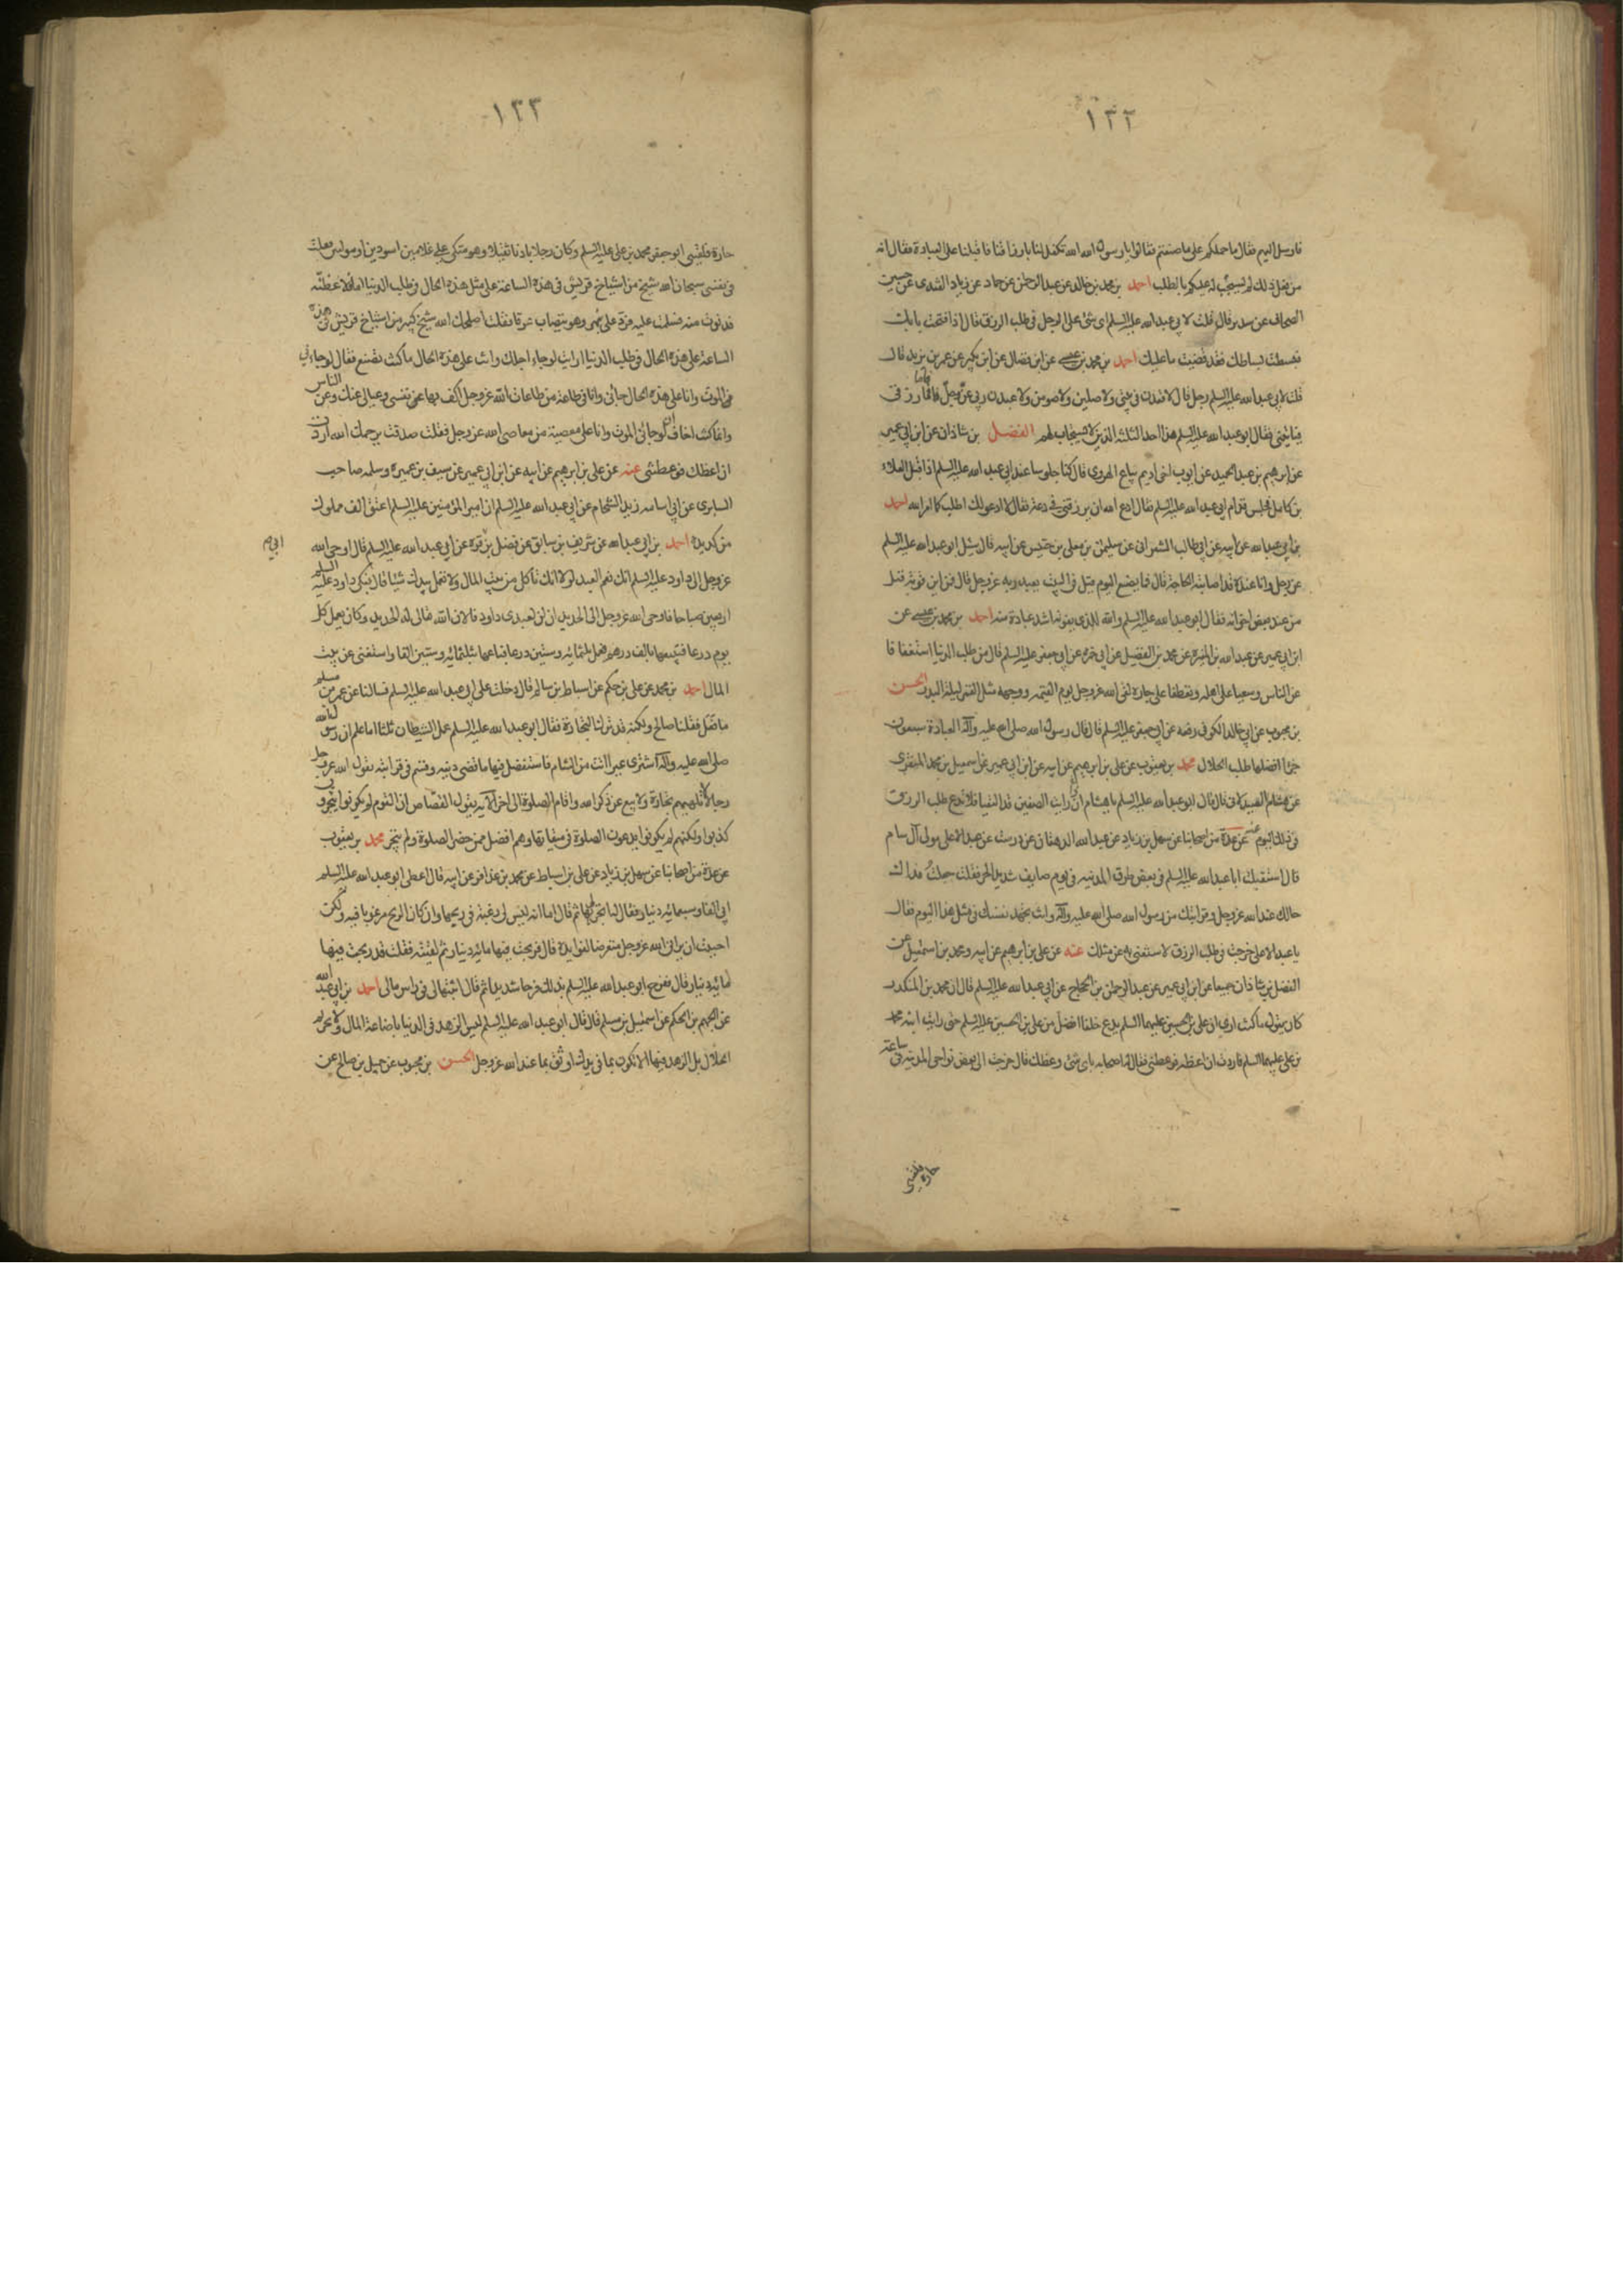 ١٣٢
فارسل اليهم فقال ما حملكم على ما صنعتم فقالوا يا رسول الله الله تكفل لنا بارزاقنا فاقبلنا على العبادة فقال انه
من فعل ذلك لم يستجب له عليكم بالطلب احمد بن محمد بن خالد عن عبد الرحمن عن حماد عن زياد القندى عن حسين
الصحاف عن سدير قال قلت لابي عبد الله عليه السلم اى شئ على الرجل في طلب الرزق فقال اذا فتحت بابك
وبسطت بساطك فقد قضيت ما عليك احمد بن محمد بن عيسى عن ابن فضال عن ابن بكير عن عمر بن يزيد قال
قلت لابي عبد الله عليه السلم رجل قال لاقعدن في بيتي ولاصلين ولاصومن ولاعبدن ربي عز وجل فاما رزقى
فياتيني فقال ابو عبد الله عليه السلم هذا احد الثلثة الذين لا يستجاب لهم الفضل بن شاذان عن ابن ابي عمير
عن ابرهيم بن عبد الحميد عن ايوب اخى اديم بياع الهروى قال كنا جلوسا عند ابي عبد الله عليه السلم اذ اقبل العلاء
بن كامل فجلس قدام ابي عبد الله عليه السلم فقال ادع الله ان يرزقني في دعة فقال لا ادعو لك اطلب كما امر الله احمد
بن ابي عبد الله عن ابيه عن ابي طالب الشعراني عن سليمن بن معلى بن خنيس عن ابيه قال سئل ابو عبد الله عليه السلم
عن رجل وانا عنده قد اصابته الحاجة قال فما يصنع اليوم قيل في البيت يعبد ربه عز وجل قال فمن اين قوته قيل
من عند بعض اخوانه فقال ابو عبد الله عليه السلم والله للذى يقوته اشد عبادة منه احمد بن محمد بن عيسى عن
ابن ابي عمير عن عبد الله بن المغيرة عن محمد بن الفضيل عن ابي حمزة عن ابي جعفر عليه السلم قال من طلب الدنيا استعفافا
عن الناس وسعيا على اهله وتعطفا على جاره لقى الله عز وجل يوم القيمة ووجهه مثل القمر ليلة البدر الحسن
بن محبوب عن ابي خالد الكوفي رفعه عن ابي جعفر عليه السلم قال قال رسول الله صلى الله عليه وآله العبادة سبعون
جزءا افضلها طلب الحلال محمد بن يعقوب عن على بن ابرهيم عن ابيه عن ابن ابي عمير عن اسمعيل بن محمد المنقرى
عن هشام الصيدلاني قال قال ابو عبد الله عليه السلم يا هشام ان رايت الصفين قد التقيا فلا تدع طلب الرزق
في ذلك اليوم عنه عن عدة من اصحابنا عن سهل بن زياد عن عبد الله الدهقان عن درست عن عبد الاعلى مولى آل سام
قال استقبلت ابا عبد الله عليه السلم في بعض طرق المدينه في يوم صايف شديد الحر فقلت جعلت فداك
حالك عند الله عز وجل وقرابتك من رسول الله صلى الله عليه وآله وانت تجهد نفسك في مثل هذا اليوم فقال
يا عبد الاعلى خرجت في طلب الرزق لاستغني به عن مثلك عنه عن على بن ابرهيم عن ابيه ومحمد بن اسمعيل عن
الفضل بن شاذان جميعا عن ابن ابي عمير عن عبد الرحمن بن الحجاج عن ابي عبد الله عليه السلم قال ان محمد بن المنكدر
كان يقول ما كنت ارى ان على بن الحسين عليهما السلم يدع خلفا افضل من على بن الحسين عليه السلم حتى رايت ابنه محمد
بن على عليهما السلم فاردت ان اعظه فوعظني فقال له اصحابه باى شئ وعظك قال خرجت الى بعض نواحى المدينه في ساعة
حارة فلقيني
١٣٣
حارة فلقيني ابو جعفر محمد بن على عليه السلم وكان رجلا بادنا ثقيلا وهو متكى على غلامين اسودين او موليين فقلت
في نفسي سبحان الله شيخ من اشياخ قريش في هذه الساعة على مثل هذه الحال في طلب الدنيا اما لاعظنه
فدنوت منه فسلمت عليه فرد على بنهر وهو يتصاب عرقا فقلت اصلحك الله شيخ من اشياخ قريش في هذه
الساعة على هذه الحال في طلب الدنيا ارايت لو جاء اجلك وانت على هذه الحال ما كنت تصنع فقال لو جاءني
الموت وانا على هذه الحال جائني وانا في طاعة من طاعات الله عز وجل اكف بها نفسي وعيالي عنك وعن الناس
وانما كنت اخاف ان لو جائني الموت وانا على معصية من معاصى الله عز وجل فقلت صدقت يرحمك الله اردت
ان اعظك فوعظتني عنه عن على بن ابرهيم عن ابيه عن ابن ابي عمير عن سيف بن عميرة وسلمه صاحب
السابرى عن ابي اسامه زيد الشحام عن ابي عبد الله عليه السلم ان امير المؤمنين عليه السلم اعتق الف مملوك
من كد يده احمد بن ابي عبد الله عن شريف بن سابق عن فضل بن قره عن ابي عبد الله عليه السلم قال اوحى الله
عز وجل الى داود عليه السلم انك نعم العبد لولا انك تاكل من بيت المال ولا تعمل بيدك شيئا قال فبكى داود عليه السلم
اربعين صباحا فاوحى الله عز وجل الى الحديد ان لن لعبدى داود فالان الله تعالى له الحديد وكان يعمل كل
يوم درعا فيبيعها بالف درهم فعمل ثلثمائه وستين درعا فباعها بثلثمائه وستين الفا واستغنى عن بيت
المال احمد بن محمد عن على بن حكم عن اسباط بن سالم قال دخلت على ابي عبد الله عليه السلم فسالنا عن عمر بن مسلم
ما فعل فقلنا صالح ولكنه قد ترك التجارة فقال ابو عبد الله عليه السلم عمل الشيطان ثلثا اما علم ان رسول الله
صلى الله عليه وآله اشترى عيرا اتت من الشام فاستفضل فيها ما قضى دينه وقسم في قرابته يقول الله عز وجل
رجال لا تلهيهم تجارة ولا بيع عن ذكر الله واقام الصلوة الى آخر الآيه يقول القصاص ان القوم لم يكونوا يتجرون
كذبوا ولكنهم لم يكونوا يدعون الصلوة في ميقاتها وهم افضل ممن حضر الصلوة ولم يتجر محمد بن يعقوب
عن عدة من اصحابنا عن سهل بن زياد عن على بن اسباط عن محمد بن عذافر عن ابيه قال اعطى ابو عبد الله عليه السلم
ابي الفا وسبعمائه دينار فقال له اتجر لي بها ثم قال اما انه ليس لي رغبة في ربحها وان كان الربح مرغوبا فيه ولكن
احببت ان يراني الله عز وجل متعرضا لفوايده قال فربحت فيها مائه دينار ثم لقيته فقلت قد ربحت فيها
مائه دينار قال ففرح ابو عبد الله عليه السلم بذلك فرحا شديدا ثم قال اثبتها لي في راس مالى احمد بن ابي عبد الله
عن الجهم بن الحكم عن اسمعيل بن مسلم قال قال ابو عبد الله عليه السلم ليس الزهد في الدنيا باضاعة المال ولا تحريم
الحلال بل الزهد فيها الا تكون بما في يدك اوثق بما عند الله عز وجل الحسن بن محبوب عن جميل بن صالح عن